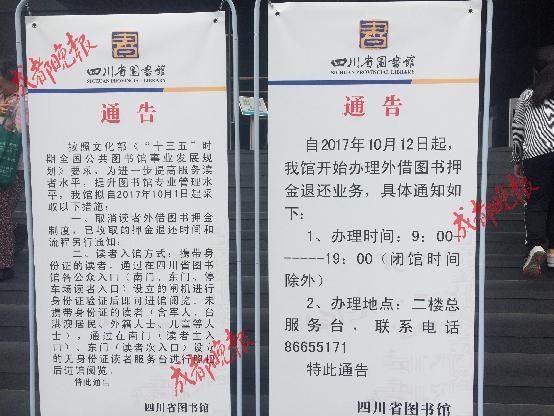 成都晚报
書
四川省图書館
SICHUAN PROVINCIAL LIBRARY
通告
按照文化部《“十三五”时
期全国公共图书馆事业发展规
划》要求，为进一步提高服务读
者水平，提升图书馆专业管理水
平，我馆拟自2017年10月1日起采
取以下措施：
一、取消读者外借图书押金
制度，已收取的押金退还时间和
流程另行通知；
二、读者入馆方式：携带身
份证的读者，通过在四川省图书
馆各公众入口（南门、东门、
停车场读者入口）设立的闸机进行
身份证验证后即可进馆阅览。未
携带身份证的读者（含军人、台
港澳居民、外籍人士、儿童等人
士），通过在南门（读者主入
口）、东门（读者次入口）设立
的无身份证读者服务台进行
后进馆阅览。
特此通告
四川省图书馆
成都晚报
書
四川省图書館
SICHUAN PROVINCIAL LIBRARY
通告
自2017年10月12日起，
我馆开始办理外借图书押
金退还业务，具体通知如
下：
1、办理时间：9：00-
-----19：00（闭馆时间
除外）
2、办理地点：二楼总
服务台，联系电话
86655171
特此通告
四川省图书馆
成都晚报